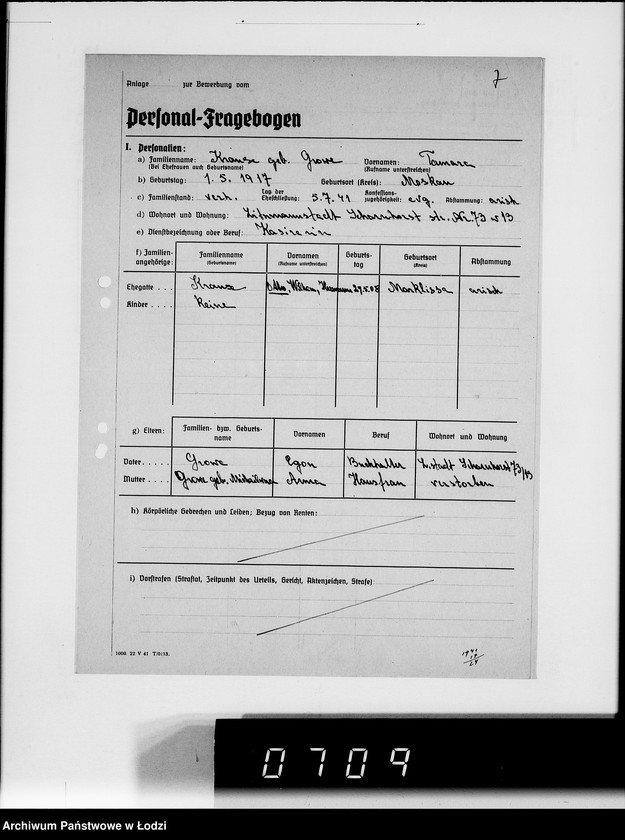 7
Anlage zur Bewerbung vom
Personal-Fragebogen
I. Personalien:
a) Familienname: Krause geb. Growe Vornamen: Tamara
(Bei Ehefrauen auch Geburtsname) (Rufname unterstreichen)
b) Geburtstag: 1. 5. 1917 Geburtsort (Kreis): Moskau
c) Familienstand: verh. Tag der Eheschließung: 5.7.41 Konfessions-zugehörigkeit: evg. Abstammung: arisch
d) Wohnort und Wohnung: Litzmannstadt Scharnhorst str. Nr. 73 w 13
e) Dienstbezeichnung oder Beruf: Kasirerin
f) Familien-angehörige: Familienname (Geburtsname) Vornamen (Rufname unterstreichen) Geburts-tag Geburtsort (Kreis) Abstammung
Ehegatte . . . . Krause Otto, Wilhelm, Hermann 27.5.08 Marklissa arisch
Kinder . . . . Keine
g) Eltern: Familien- bzw. Geburts-name Vornamen Beruf Wohnort und Wohnung
Vater . . . . . Growe Egon Buchhalter L.stadt Scharnhorst 73/13
Mutter . . . . Growe geb. Anna Hausfrau verstorben
h) Körperliche Gebrechen und Leiden; Bezug von Renten:
i) Vorstrafen (Straftat, Zeitpunkt des Urteils, Gericht, Aktenzeichen, Strafe):
1000. 22 V 41 T/0113.
0709
Archiwum Państwowe w Łodzi